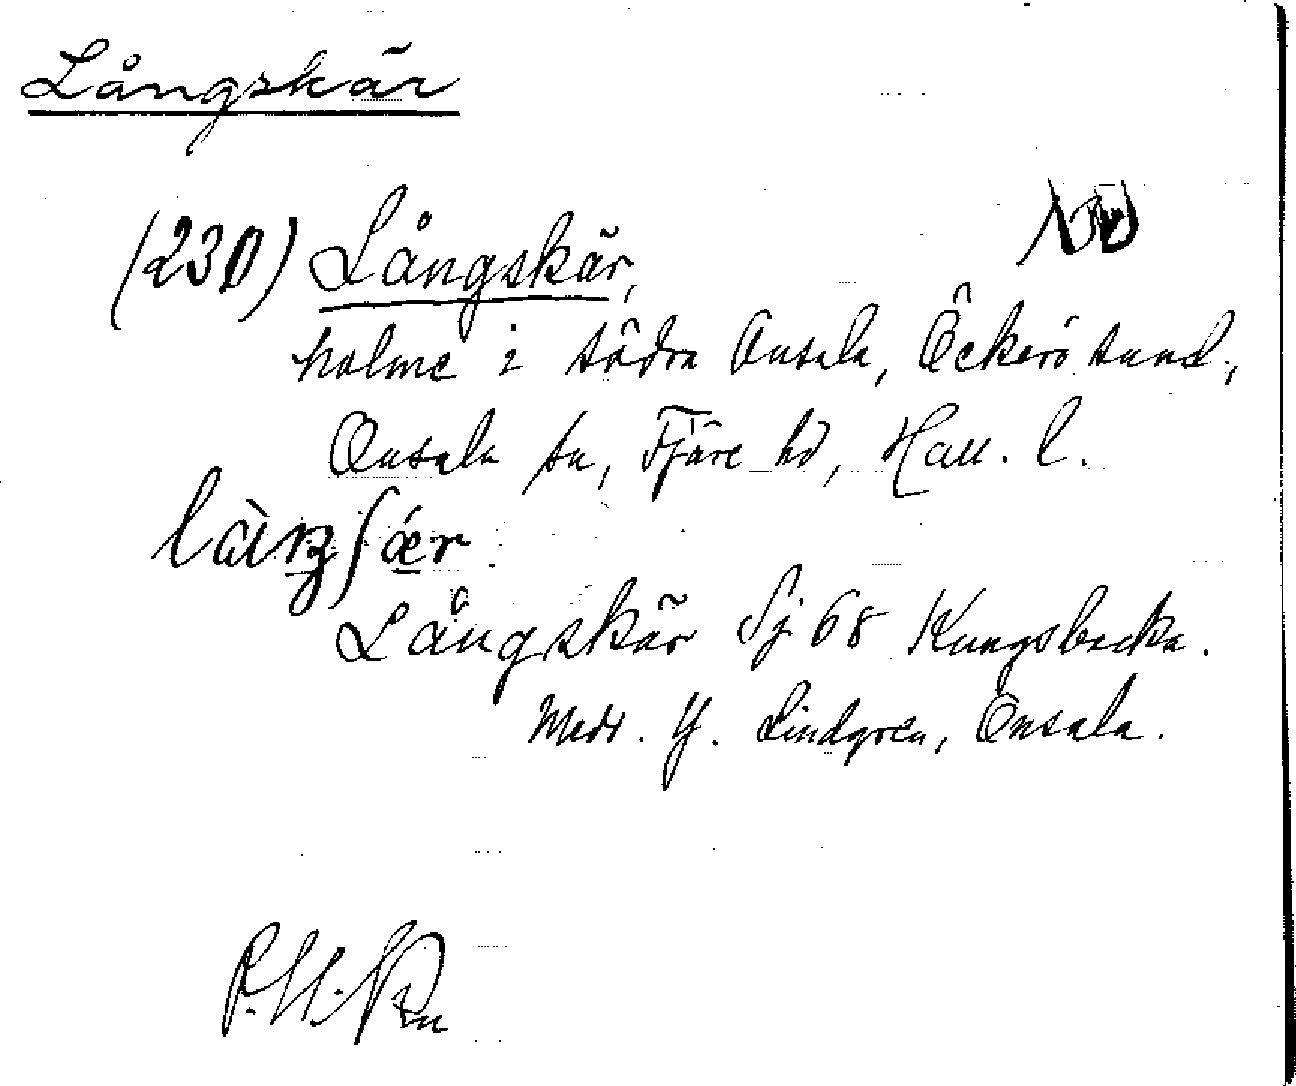 Långskär
(230) Långskär,
holme i södra Onsala, Öckerö sund,
Onsala sn, Fjäre hd, Hall. l.
Långskär Sj 68 Kungsbacka.
Medd. Y. Lindgren, Onsala.